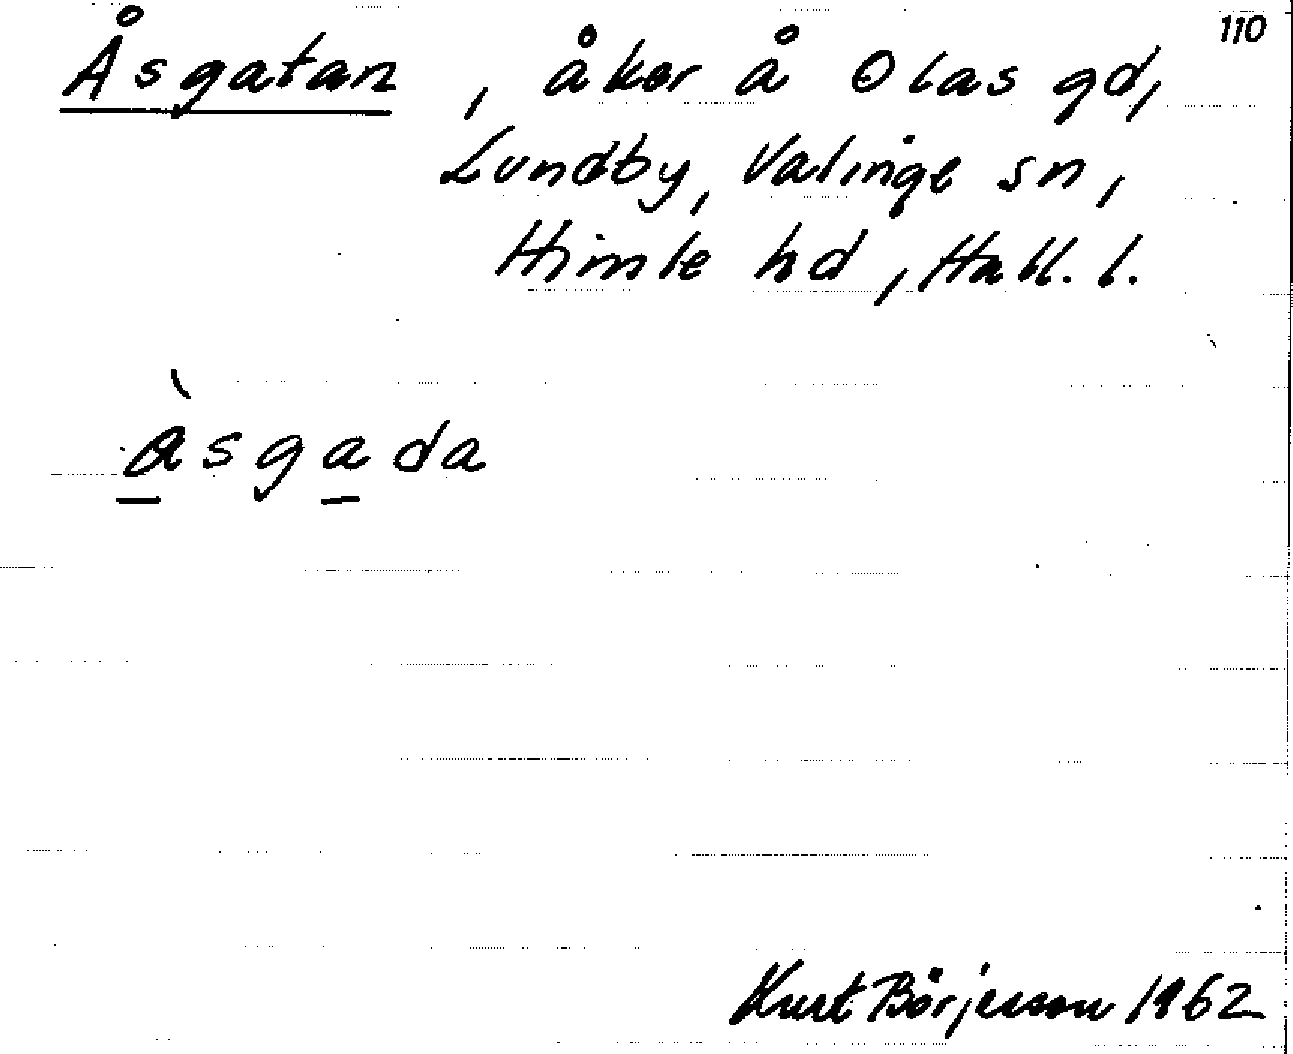 110
Åsgatan, åker å Olas gd,
Lundby, Valinge sn,
Himle hd, Hall. l.
àsgada
Kurt Börjesson 1962